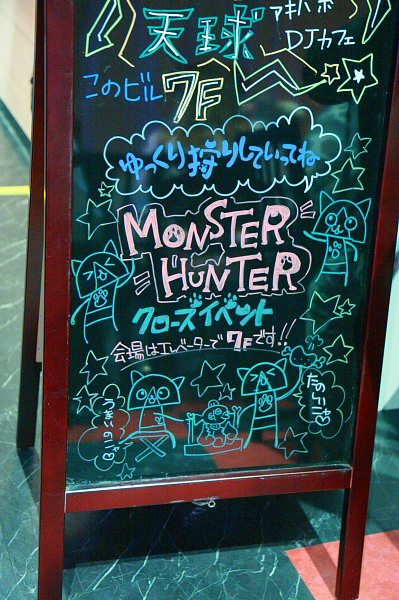 天球
アキバ
DJカフェ
このビル
7F
ゆっくり狩りしていってね
MONSTER
HUNTER
クローズイベント
会場はエレベーターで7Fです!!